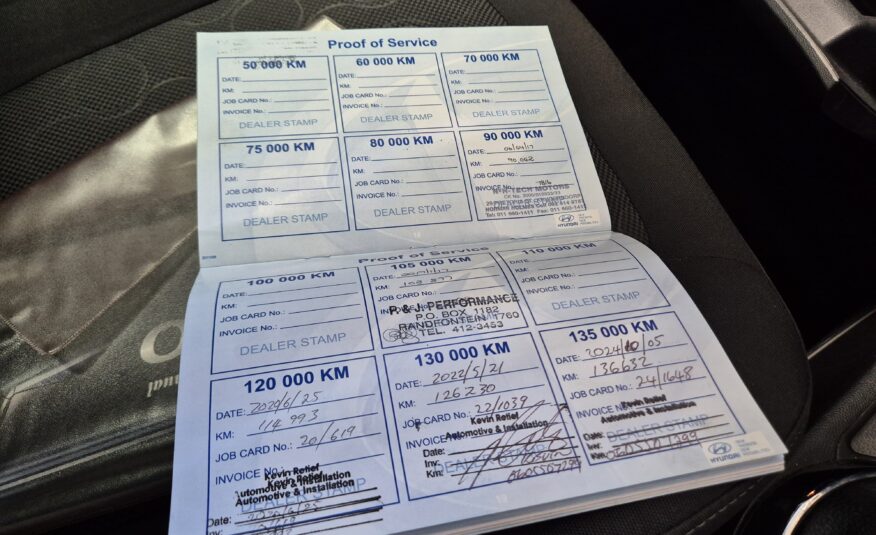 Proof of Service
50 000 KM
DATE:
KM:
JOB CARD No.:
INVOICE No.:
DEALER STAMP
60 000 KM
DATE:
KM:
JOB CARD No.:
INVOICE No.:
DEALER STAMP
70 000 KM
DATE:
KM:
JOB CARD No.:
INVOICE No.:
DEALER STAMP
75 000 KM
DATE:
KM:
JOB CARD No.:
INVOICE No.:
DEALER STAMP
80 000 KM
DATE:
KM:
JOB CARD No.:
INVOICE No.:
DEALER STAMP
90 000 KM
DATE:
KM:
JOB CARD No.:
INVOICE No.:
TECH MOTORS
Tel: 011 660-1411
HYUNDAI
Proof of Service
100 000 KM
DATE:
KM:
JOB CARD No.:
INVOICE No.:
DEALER STAMP
105 000 KM
DATE:
KM:
JOB CARD
P. & J. PERFORMANCE
P.O. BOX 1182
RANDFONTEIN 1760
TEL. 412-3453
110 000 KM
DATE:
KM:
JOB CARD No.:
INVOICE No.:
DEALER STAMP
120 000 KM
DATE: 2020/6/25
KM: 114 993
JOB CARD No.: 20/619
INVOICE No.:
Kevin Retief
Automotive & Installation
DEALER STAMP
Date:
130 000 KM
DATE: 2022/5/21
KM: 126230
JOB CARD No.: 22/1039
INVOICE
Kevin Retief
Automotive & Installation
Date:
Inv:
Km:
135 000 KM
DATE: 2024/10/05
KM: 136632
JOB CARD No.: 24/1648
INVOICE No.
Kevin Retief
Automotive & Installation
DEALER STAMP
Date:
Inv:
HYUNDAI
ual